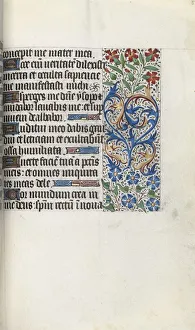 concepit me mater mea
Ecce enim veritatē dilexisti
incerta et occulta sapientie
tue manifestasti michi
Asperges me dñe ysopo et
mundabor lavabis me et super
nivem dealbabor
Auditui meo dabis gau
diū et leticiam et exultabunt
ossa humiliata
Averte faciē tuā a pctis
meis : et omnes iniquita
tes meas dele
Cor mundum crea in
me deus : spm rectū innova